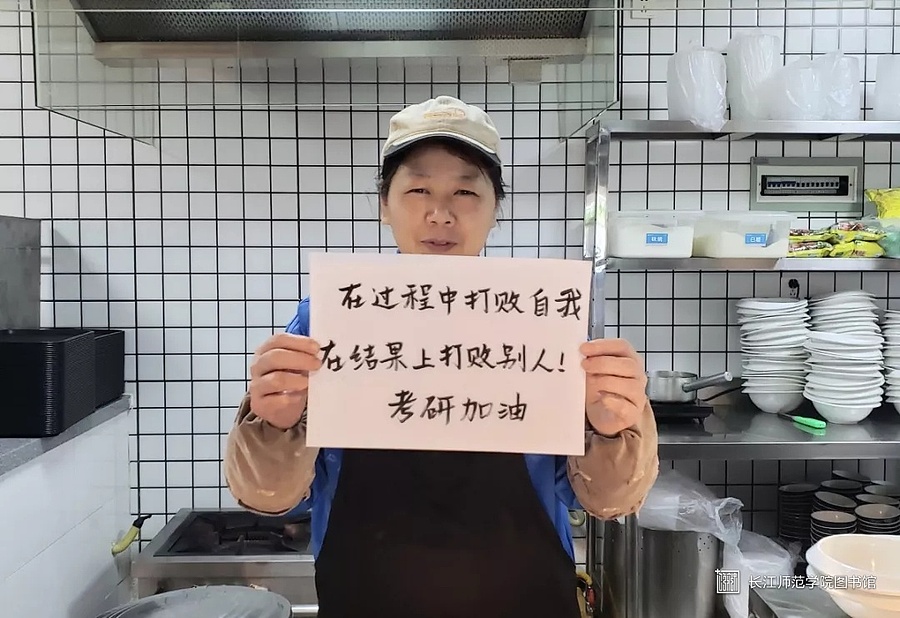 在过程中打败自我
在结果上打败别人!
考研加油
长江师范学院图书馆